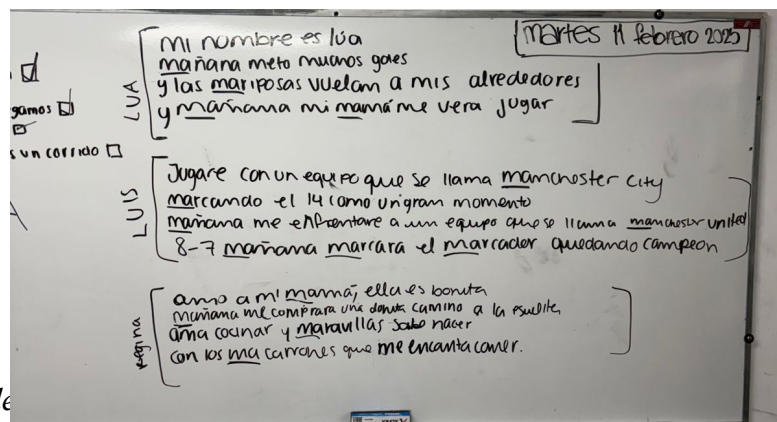 martes 11 febrero 2025
gamos
s un corrido
LUA
mi nombre es lúa
mañana meto muchos goles
y las mariposas vuelam a mis alrededores
y mañana mi mamá me vera jugar
LUIS
Jugare con un equipo que se llama manchester city
marcando el 14 como un gran momento
mañana me enfrentare a un equipo que se llama manchester united
8-7 mañana marcara el marcador quedando campeon
Regina
amo a mi mamá, ella es bonita
mañana me comprara una donita camino a la
ama cocinar y maravillas sabe hacer
con los ma carrones que me encanta comer.